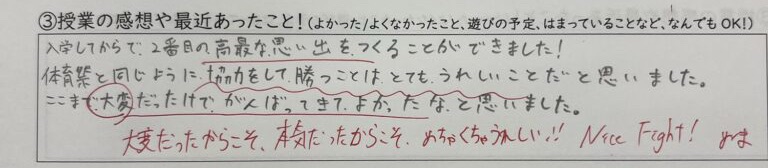 ③授業の感想や最近あったこと！(よかった/よくなかったこと、遊びの予定、はまっていることなど、なんでもOK!)
入学してからで、2番目の高最な思い出をつくることができました！
体育祭と同じように、協力をして、勝つことは、とても、うれしいことだと思いました。
ここまで大変だったけで、がんばってきて、よかったな、と思いました。
大変だったからこそ、本気だったからこそ、めちゃくちゃうれしい!! Nice Fight!